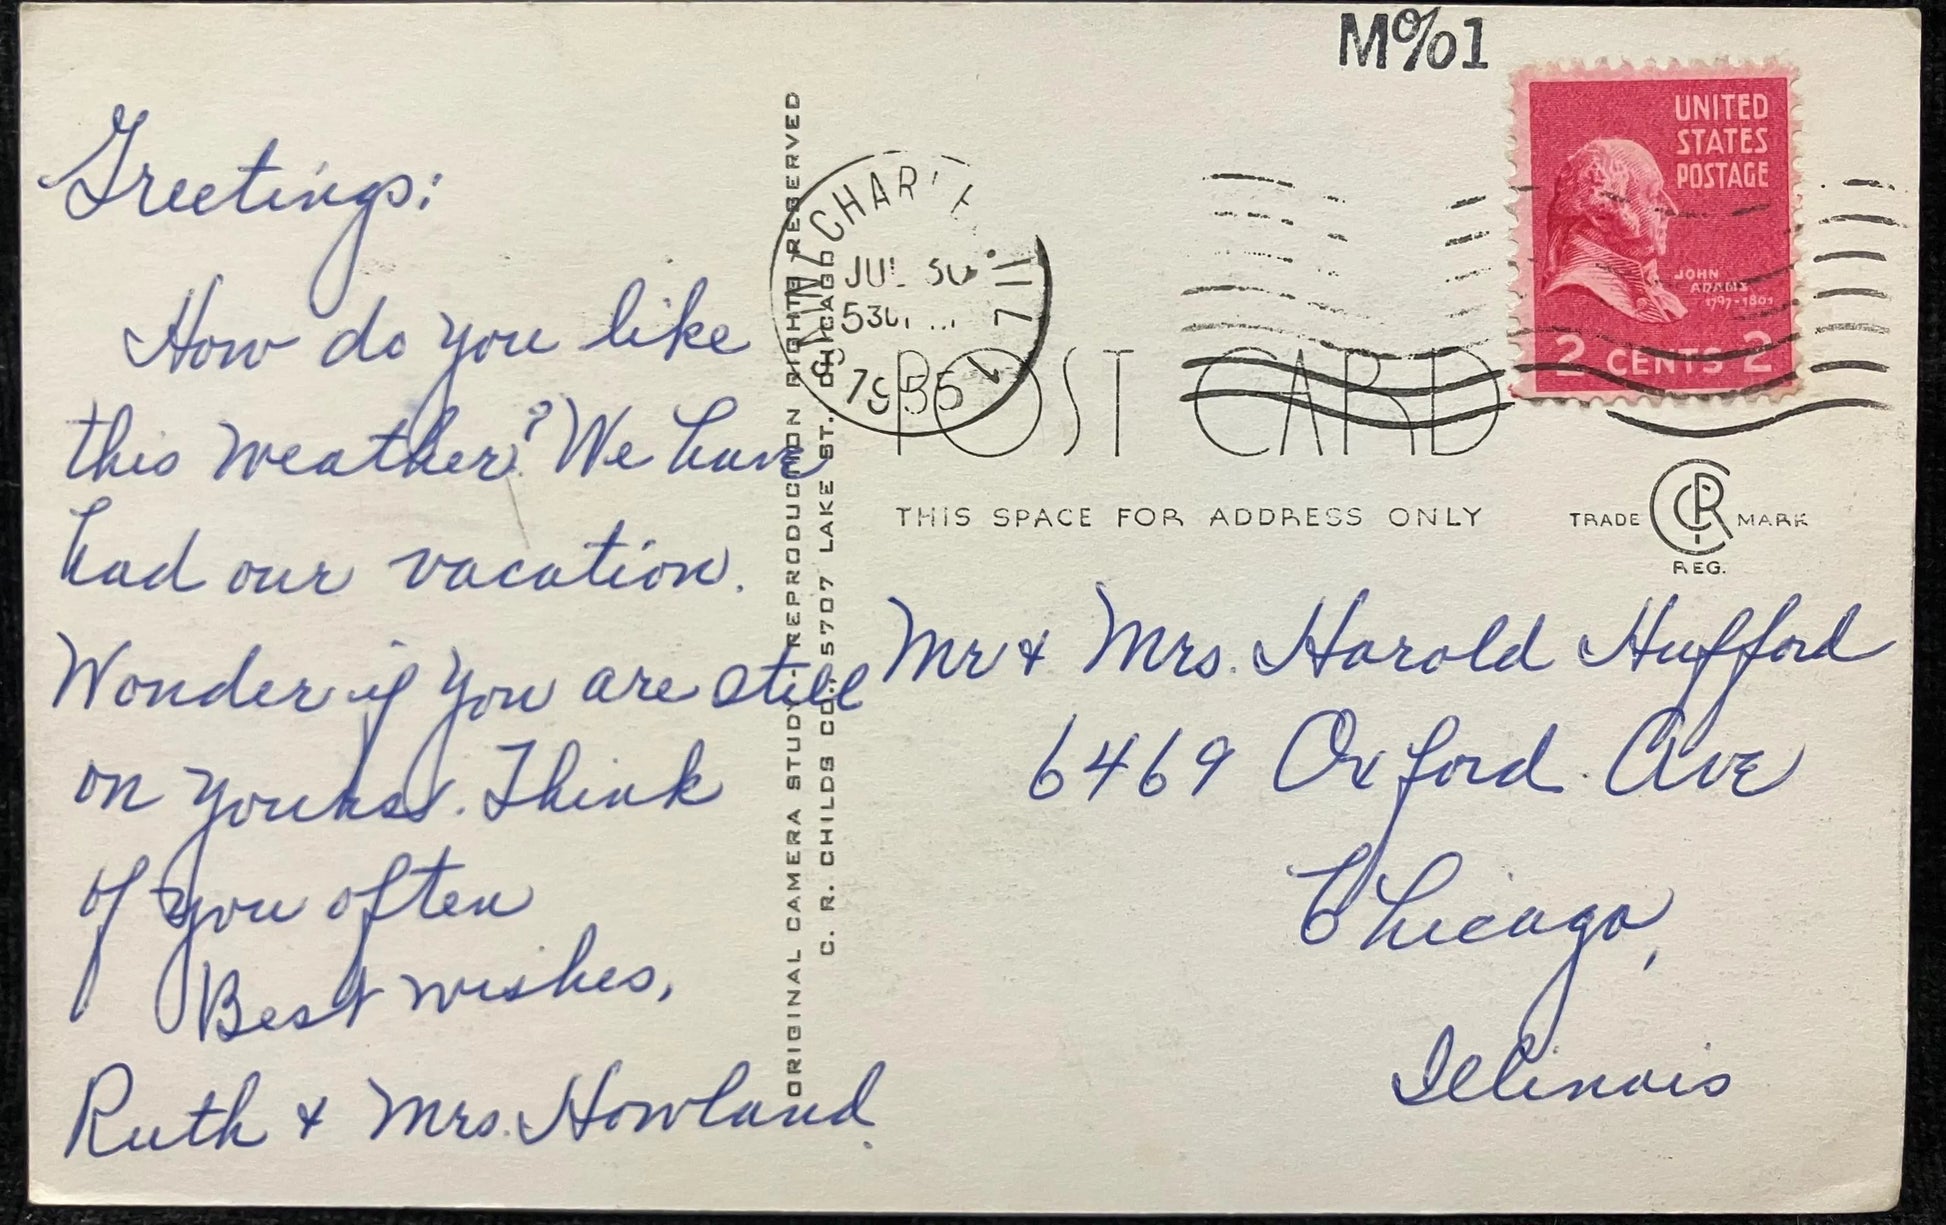 Greetings:
How do you like
this weather? We have
had our vacation.
Wonder if you are still
on yours. Think
of you often
Best wishes,
Ruth & Mrs. Howland.
ORIGINAL CAMERA STUDY - REPRODUCTION RIGHTS RESERVED
C. R. CHILDS CO., 5707 LAKE ST., CHICAGO
SAINT CHAR
JUL 30
530
1955
ILL
M%1
UNITED
STATES
POSTAGE
JOHN
ADAMS
1797-1801
2 CENTS 2
POST CARD
THIS SPACE FOR ADDRESS ONLY
TRADE CRC MARK
REG.
Mr & Mrs. Harold Hufford
6469 Oxford Ave
Chicago,
Illinois